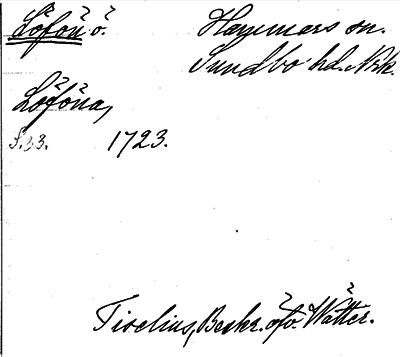 Löfön ö.
Hammars sn.
Sundbo hd. Nrk.
Löföna,
S. 33. 1723.
Tiselius, Beskr. öfv. Wätter.